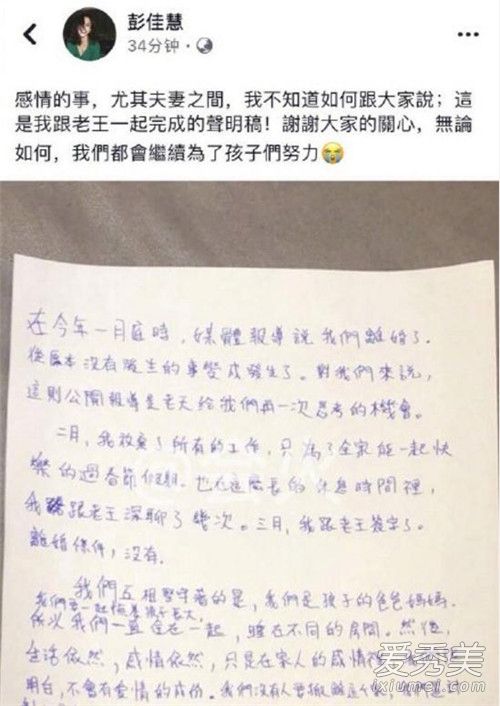 彭佳慧
34分钟
感情的事，尤其夫妻之間，我不知道如何跟大家說；這
是我跟老王一起完成的聲明稿！謝謝大家的關心，無論
如何，我們都會繼續為了孩子們努力😭
在今年一月底時，媒體報導說我們離婚了。
從原本沒有發生的事變成發生了。對我們來說，
這則公開報導是老天給我們再一次思考的機會。
二月，我放棄了所有的工作，只為了全家能一起快
樂的過春節假期。也在這長的休息時間裡，
我跟老王深聊了幾次。三月，我跟老王簽字了。
離婚條件，沒有。
我們互相堅守著的是，我們是孩子的爸爸媽媽。
我們要一起陪著孩子長大，
所以我們一直住在一起，睡在不同的房間。然後，
生活依然，感情依然，只是在家人的感情裡
明白，不會有愛情的成份。我們沒有人要
爱秀美
ixiumei.com